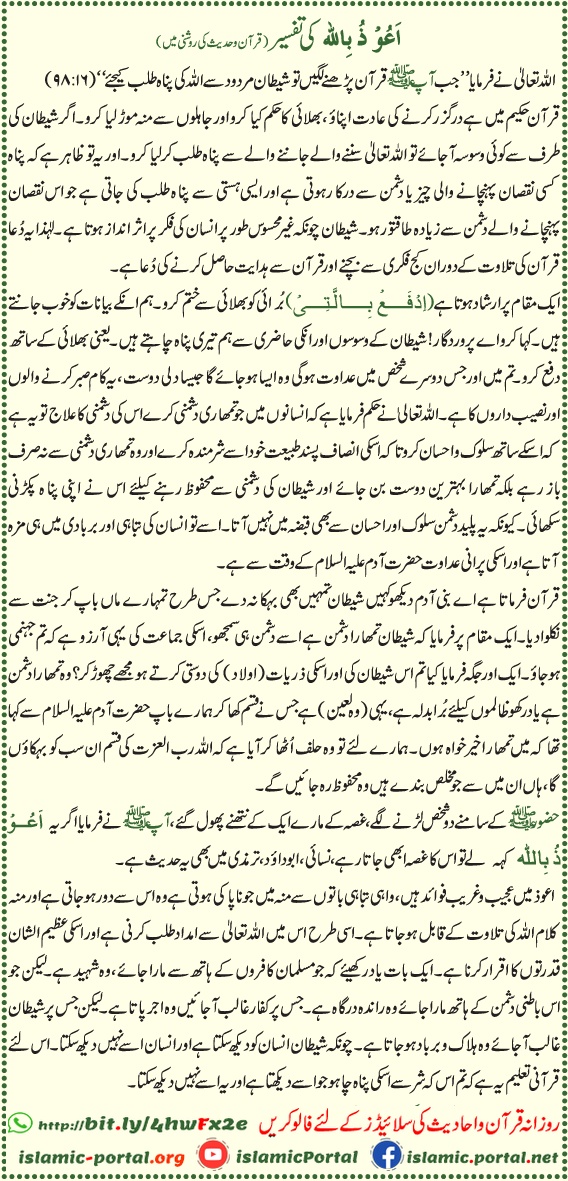 اَعُوْذُ بِاللہ کی تفسیر (قرآن وحدیث کی روشنی میں)
اللہ تعالیٰ نے فرمایا ’’جب آپ ﷺ قرآن پڑھنے لگیں تو شیطان مردود سے اللہ کی پناہ طلب کیجئے‘‘ (۹۸:۱۶)
قرآن حکیم میں ہے درگزر کرنے کی عادت اپناؤ، بھلائی کا حکم کیا کرو اور جاہلوں سے منہ موڑ لیا کرو۔ اگر شیطان کی
طرف سے کوئی وسوسہ آجائے تو اللہ تعالیٰ سننے والے جاننے والے سے پناہ طلب کر لیا کرو۔ اور یہ تو ظاہر ہے کہ پناہ
کسی نقصان پہنچانے والی چیز یا دشمن سے درکار ہوتی ہے اور ایسی ہستی سے پناہ طلب کی جاتی ہے جو اس نقصان
پہنچانے والے دشمن سے زیادہ طاقتور ہو۔ شیطان چونکہ غیر محسوس طور پر انسان کی فکر پر اثر انداز ہوتا ہے۔ لہٰذا یہ دُعا
قرآن کی تلاوت کے دوران کج فکری سے بچنے اور قرآن سے ہدایت حاصل کرنے کی دُعا ہے۔
ایک مقام پر ارشاد ہوتا ہے (اِدْفَعْ بِالَّتِیْ) بُرائی کو بھلائی سے ختم کرو۔ ہم انکے بیانات کو خوب جانتے
ہیں۔ کہا کرو اے پروردگار! شیطان کے وسوسوں اور انکی حاضری سے ہم تیری پناہ چاہتے ہیں۔ یعنی بھلائی کے ساتھ
دفع کرو۔ تم میں اور جس دوسرے شخص میں عداوت ہوگی وہ ایسا ہو جائے گا جیسا دلی دوست، یہ کام صبر کرنے والوں
اور نصیب داروں کا ہے۔ اللہ تعالیٰ نے حکم فرمایا ہے کہ انسانوں میں جو تمھاری دشمنی کرے اس کی دشمنی کا علاج تو یہ ہے
کہ اسکے ساتھ سلوک و احسان کرو تا کہ اسکی انصاف پسند طبیعت خود اسے شرمندہ کرے اور وہ تمھاری دشمنی سے نہ صرف
باز رہے بلکہ تمھارا بہترین دوست بن جائے اور شیطان کی دشمنی سے محفوظ رہنے کیلئے اس نے اپنی پناہ پکڑنی
سکھائی۔ کیونکہ یہ پلید دشمن سلوک اور احسان سے بھی قبضہ میں نہیں آتا۔ اسے تو انسان کی تباہی اور بربادی میں ہی مزہ
آتا ہے اور اسکی پرانی عداوت حضرت آدم علیہ السلام کے وقت سے ہے۔
قرآن فرماتا ہے اے بنی آدم دیکھو کہیں شیطان تمہیں بھی بہکا نہ دے جس طرح تمہارے ماں باپ کر جنت سے
نکلوا دیا۔ ایک مقام پر فرمایا کہ شیطان تمھارا دشمن ہے اسے دشمن ہی سمجھو، اسکی جماعت کی یہی آرزو ہے کہ تم جہنمی
ہو جاؤ۔ ایک اور جگہ فرمایا کیا تم اس شیطان کی اور اسکی ذریات (اولاد) کی دوستی کرتے ہو مجھے چھوڑ کر؟ وہ تمھارا دشمن
ہے یاد رکھو ظالموں کیلئے بُرا بدلہ ہے، یہی (وہ لعین) ہے جس نے قسم کھا کر ہمارے باپ حضرت آدم علیہ السلام سے کہا
تھا کہ میں تمھارا خیر خواہ ہوں۔ ہمارے لئے تو وہ حلف اُٹھا کر آیا ہے کہ اللہ رب العزت کی قسم ان سب کو بہکاؤں
گا، ہاں ان میں سے جو مخلص بندے ہیں وہ محفوظ رہ جائیں گے۔
حضور ﷺ کے سامنے دو شخص لڑنے لگے، غصہ کے مارے ایک کے نتھنے پھول گئے، آپ ﷺ نے فرمایا اگر یہ اَعُوْ
ذُ بِاللہ کہہ لے تو اس کا غصہ ابھی جاتا رہے، نسائی، ابوداؤد، ترمذی میں بھی یہ حدیث ہے۔
اعوذ میں عجیب و غریب فوائد ہیں، واہی تباہی باتوں سے منہ میں جو ناپاکی ہوتی ہے وہ اس سے دور ہو جاتی ہے اور منہ
کلام اللہ کی تلاوت کے قابل ہو جاتا ہے۔ اسی طرح اس میں اللہ تعالیٰ سے امداد طلب کرنی ہے اور اسکی عظیم الشان
قدرتوں کا اقرار کرنا ہے۔ ایک بات یاد رکھیئے کہ جو مسلمان کافروں کے ہاتھ سے مارا جائے، وہ شہید ہے۔ لیکن جو
اس باطنی دشمن کے ہاتھ مارا جائے وہ راندہ درگاہ ہے۔ جس پر کفار غالب آجائیں وہ اجر پاتا ہے۔ لیکن جس پر شیطان
غالب آجائے وہ ہلاک و برباد ہو جاتا ہے۔ چونکہ شیطان انسان کو دیکھ سکتا ہے اور انسان اسے نہیں دیکھ سکتا۔ اس لئے
قرآنی تعلیم یہ ہے کہ تم اس کہ شر سے اسکی پناہ چاہو جو اسے دیکھتا ہے اور یہ اسے نہیں دیکھ سکتا۔
روزانہ قرآن و احادیث کی سلائیڈز کے لئے فالو کریں http://bit.ly/4hwFx2e
islamic-portal.org islamicPortal islamic.portal.net